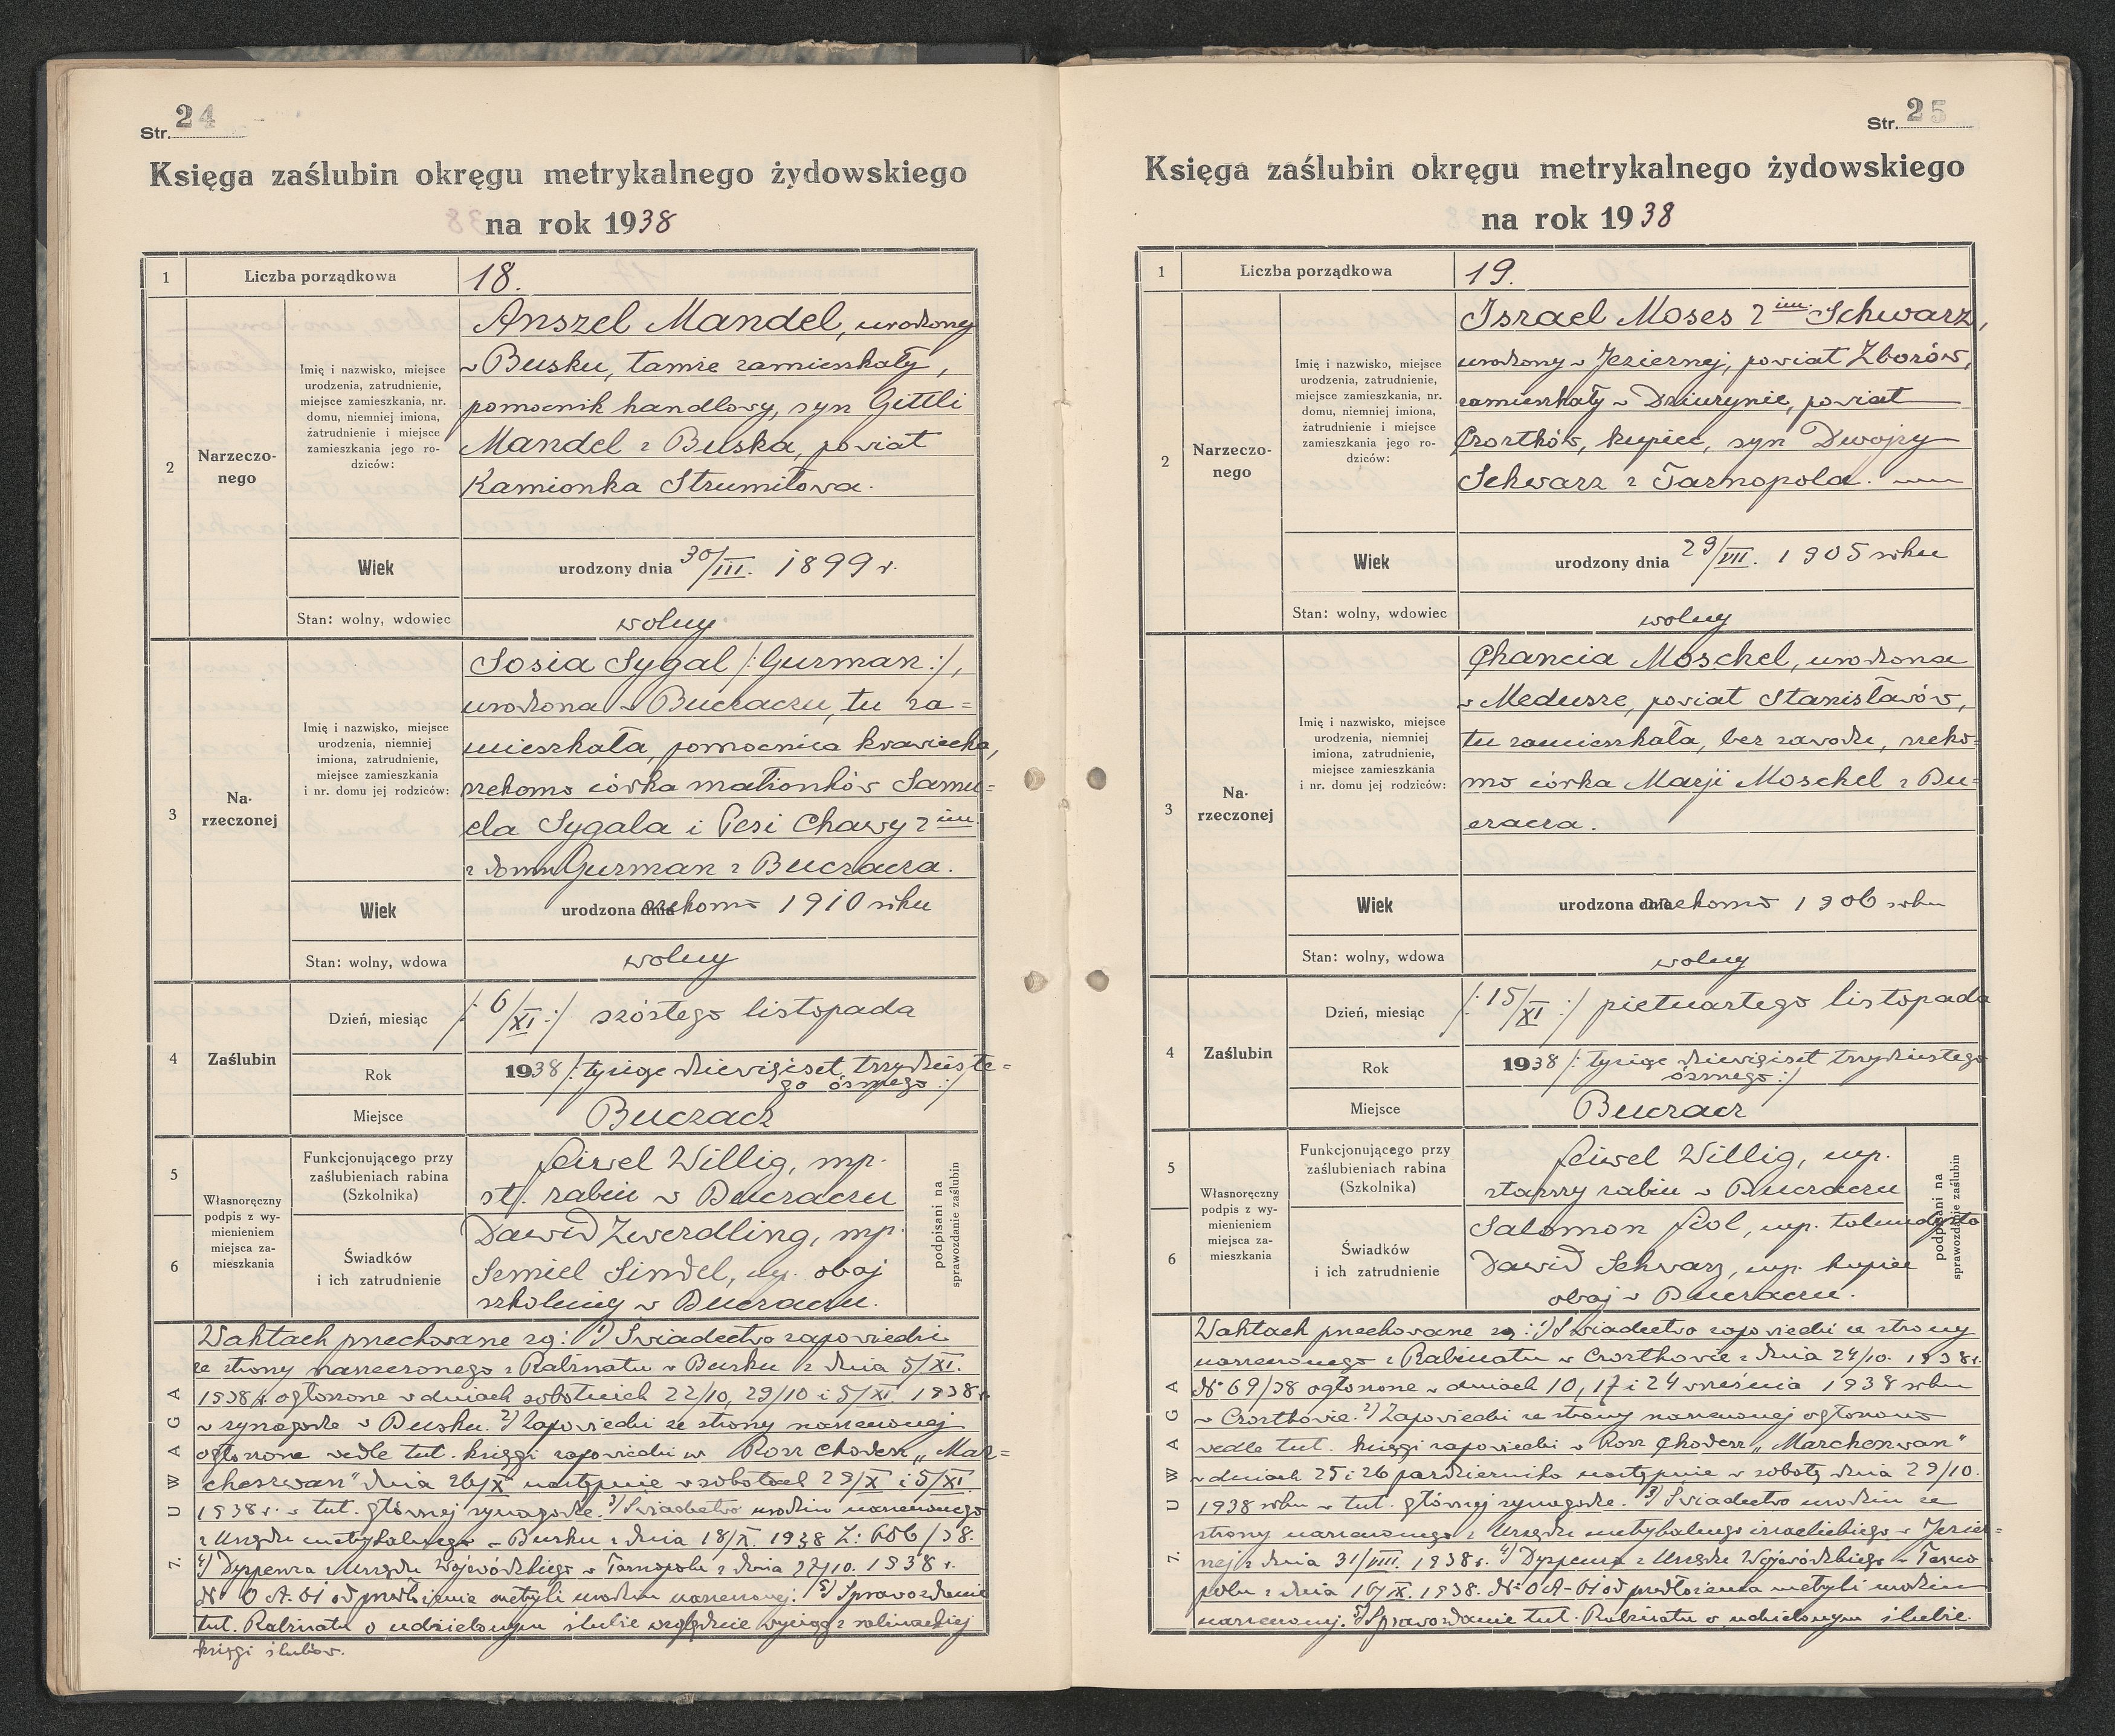 Str. 24
Księga zaślubin okręgu metrykalnego żydowskiego
na rok 1938
1
Liczba porządkowa
18.
2
Narzeczo-
nego
Imię i nazwisko, miejsce
urodzenia, zatrudnienie,
miejsce zamieszkania, nr.
domu, niemniej imiona,
zatrudnienie i miejsce
zamieszkania jego ro-
dziców:
Anszel Mandel, urodzony
w Busku, tamże zamieszkały,
pomocnik handlowy, syn Gittli
Mandel z Buska, powiat
Kamionka Strumiłowa.
Wiek
urodzony dnia 30/III. 1899 r.
Stan: wolny, wdowiec
wolny
3
Na-
rzeczonej
Imię i nazwisko, miejsce
urodzenia, niemniej
imiona, zatrudnienie,
miejsce zamieszkania
i nr. domu jej rodziców:
Sosia Sygal /:Gurman:/,
urodzona w Buczaczu, tu za=
mieszkała, pomocnica krawiecka,
rzekomo córka małżonków Samu=
ela Sygala i Pesi Chawy 2 im.
z domu Gurman z Buczacza.
Wiek
urodzona dnia rzekomo 1910 roku
Stan: wolny, wdowa
wolny
4
Zaślubin
Dzień, miesiąc
/: 6/XI :/ szóstego listopada
Rok
1938 /: tysiąc dziewięćset trzydzieste=
go ósmego :/
Miejsce
Buczacz
5
6
Własnoręczny
podpis z wy-
mienieniem
miejsca za-
mieszkania
Funkcjonującego przy
zaślubieniach rabina
(Szkolnika)
Feiwel Willig, mp.
st. rabin w Buczaczu
Świadków
i ich zatrudnienie
Dawid Zwerdling, mp.
Semiel Sindel, mp. obaj
szkolnicy w Buczaczu.
podpisani na
sprawozdanie zaślubin
7. UWAGA
W aktach przechowane są: 1) Świadectwo zapowiedzi
ze strony narzeczonego z Rabinatu w Busku z dnia 5/XI.
1938 r. ogłoszone w dniach sobotnich 22/10, 29/10 i 5/XI. 1938 r.
w synagodze w Busku. 2) Zapowiedzi ze strony narzeczonej
ogłoszone wedle tut. księgi zapowiedzi w Rosz Chodesz „Mar=
cheszwan" dnia 26/X następnie w sobotach 29/X i 5/XI.
1938 r. w tut. głównej synagodze. 3) Świadectwo urodzin narzeczonego
z Urzędu metrykalnego w Busku z dnia 18/X. 1938 L: 656/38.
4) Dyspenza z Urzędu Wojewódzkiego w Tarnopolu z dnia 27/10. 1938 r.
№ O A-61 od przedłożenia metryki urodzin narzeczonej. 5) Sprawozdanie
tut. Rabinatu o udzielonym ślubie względnie wyciąg z rabinackiej
księgi ślubów.
Str. 25
Księga zaślubin okręgu metrykalnego żydowskiego
na rok 1938
1
Liczba porządkowa
19.
2
Narzeczo-
nego
Imię i nazwisko, miejsce
urodzenia, zatrudnienie,
miejsce zamieszkania, nr.
domu, niemniej imiona,
zatrudnienie i miejsce
zamieszkania jego ro-
dziców:
Israel Moses 2 im. Schwarz,
urodzony w Jeziernej, powiat Zborów,
zamieszkały w Dżurynie, powiat
Czortków, kupiec, syn Dwojry
Schwarz z Tarnopola.
Wiek
urodzony dnia 29/VIII. 1905 roku
Stan: wolny, wdowiec
wolny
3
Na-
rzeczonej
Imię i nazwisko, miejsce
urodzenia, niemniej
imiona, zatrudnienie,
miejsce zamieszkania
i nr. domu jej rodziców:
Chancia Moschel, urodzona
w Medusze, powiat Stanisławów,
tu zamieszkała, bez zawodu, rzeko-
mo córka Marji Moschel z Bu=
czacza.
Wiek
urodzona dnia rzekomo 1906 roku
Stan: wolny, wdowa
wolny
4
Zaślubin
Dzień, miesiąc
/: 15/XI :/ piętnastego listopada
Rok
1938 /: tysiąc dziewięćset trzydziestego
ósmego :/
Miejsce
Buczacz
5
6
Własnoręczny
podpis z wy-
mienieniem
miejsca za-
mieszkania
Funkcjonującego przy
zaślubieniach rabina
(Szkolnika)
Feiwel Willig, mp.
starszy rabin w Buczaczu
Świadków
i ich zatrudnienie
Salomon Fiol, mp. talmudysta
Dawid Schwarz, mp. kupiec
obaj w Buczaczu.
podpisani na
sprawozdanie zaślubin
7. UWAGA
W aktach przechowane są: 1) Świadectwo zapowiedzi ze strony
narzeczonego z Rabinatu w Czortkowie z dnia 24/10. 1938 r.
№ 69/38 ogłoszone w dniach 10, 17 i 24 września 1938 roku
w Czortkowie. 2) Zapowiedzi ze strony narzeczonej ogłoszono
wedle tut. księgi zapowiedzi w Rosz Chodesz „Marcheszwan"
w dniach 25 i 26 października następnie w sobotę dnia 29/10.
1938 roku w tut. głównej synagodze. 3) Świadectwo urodzin ze
strony narzeczonego z Urzędu metrykalnego izraelickiego w Jezier=
nej z dnia 31/VIII. 1938 r. 4) Dyspenza z Urzędu Wojewódzkiego w Tarno
polu z dnia 16/IX. 1938. № O A-61 od przedłożenia metryki urodzin
narzeczonej. 5) Sprawozdanie tut. Rabinatu o udzielonym ślubie.